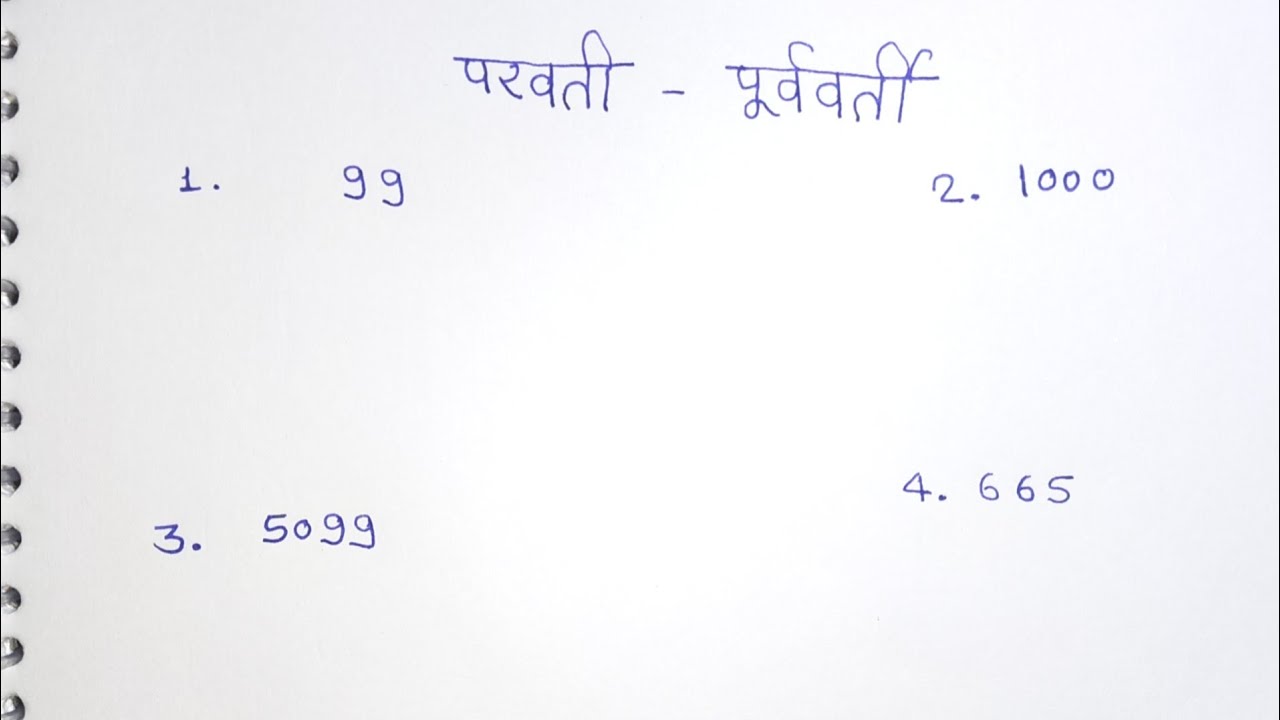 परवती - पूर्ववर्ती
1. 99
2. 1000
3. 5099
4. 665